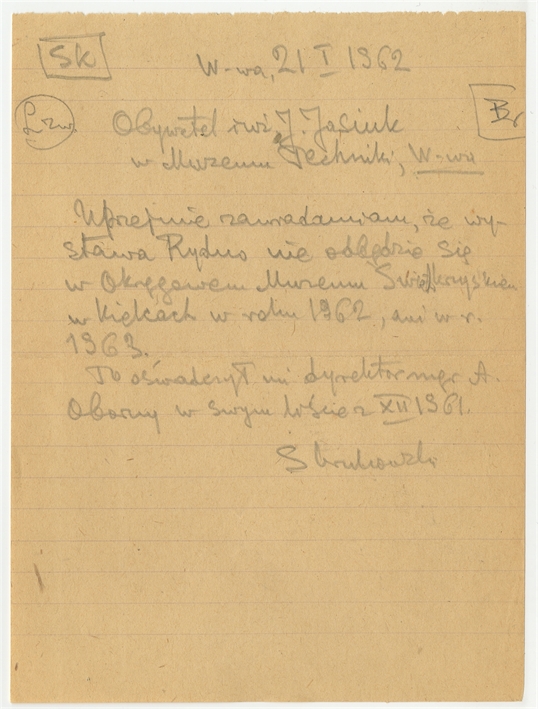 Sk
W-wa, 21 I 1962
Lrw.
Br
Obywatel inż. J. Jasiuk
w Muzeum Techniki, W-wa
Uprzejmie zawiadamiam, że wy-
stawa Rydno nie odbędzie się
w Okręgowem Muzeum Świętkrzyskiem
w Kielcach w roku 1962, ani w r.
1963.
To oświadczył mi dyrektor mgr A.
Oborny w swym liście z XII 1961.
S Krukowski